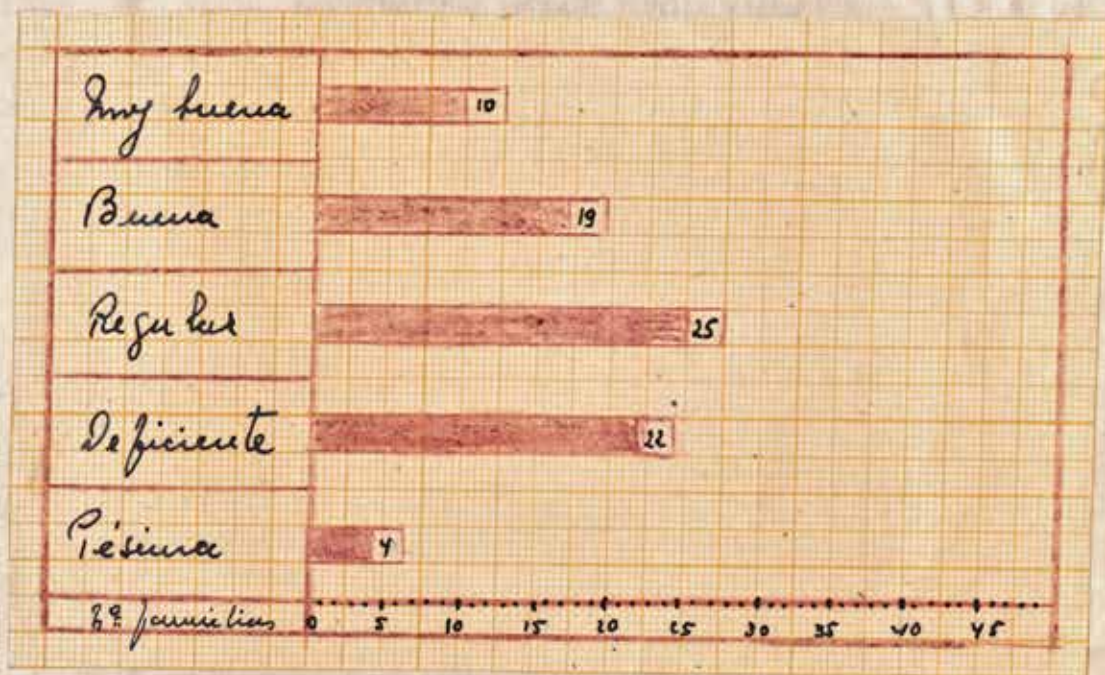 Muy buena 10
Buena 19
Regular 25
Deficiente 22
Pésima 4
Nº familias 0 5 10 15 20 25 30 35 40 45